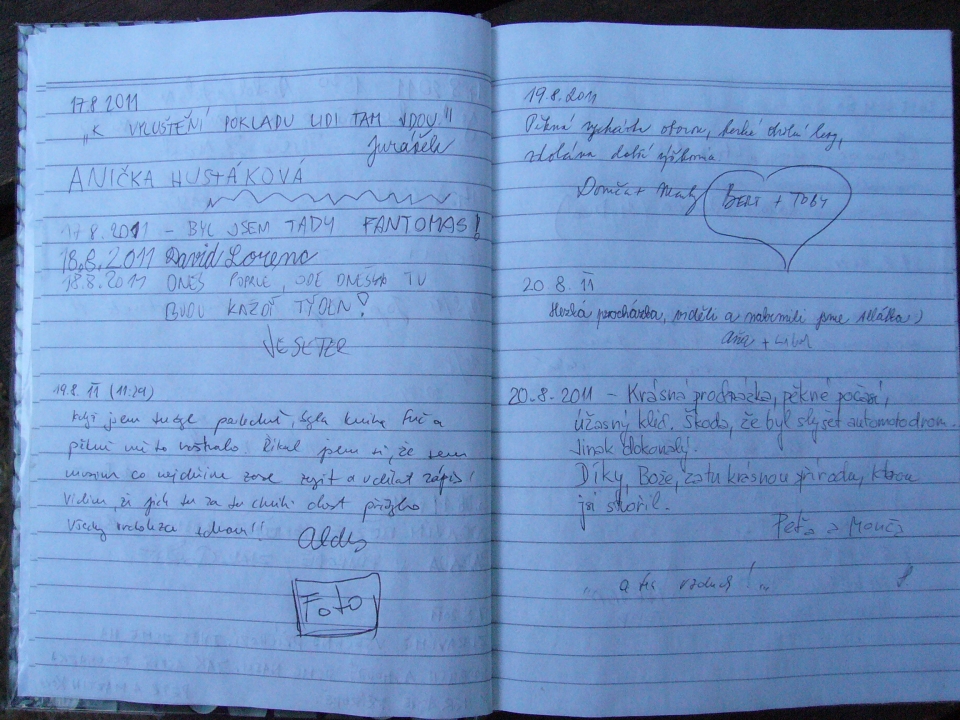 17.8 2011
"K VYLUŠTĚNÍ POKLADU LIDI TAM JDOU."
Jurášek
ANIČKA HUSTÁKOVÁ
17.8.2011 - BYL JSEM TADY FANTOMAS!
18.8.2011 David Lorenc
18.8.2011 DNES POPRVÉ, ODE DNEŠKA TU
BUDU KAŽDÝ TÝDEN!
19.8. 11 (11:29)
Když jsem tu byl posledně, byla kniha fuč a
pěkně mě to
Říkal jsem si, že sem
musím co nejdříve zase zajít a udělat zápis!
Vidím, že jich tu za tu chvíli dost přibylo
Všechny zdraví!!
Foto
19.8.2011
Pěkná vycházka oborou,
BERT + TOBY
20 8. 11
Hezká procházka, viděli a nakrmili jsme
20.8.2011 - Krásná procházka, pěkné počasí,
úžasný klid, škoda, že byl slyšet automotodrom.
Jinak dokonalý.
Díky, Bože, za tu krásnou přírodu, kterou
jsi stvořil.
Peťa a Monča
a ten vzduch!